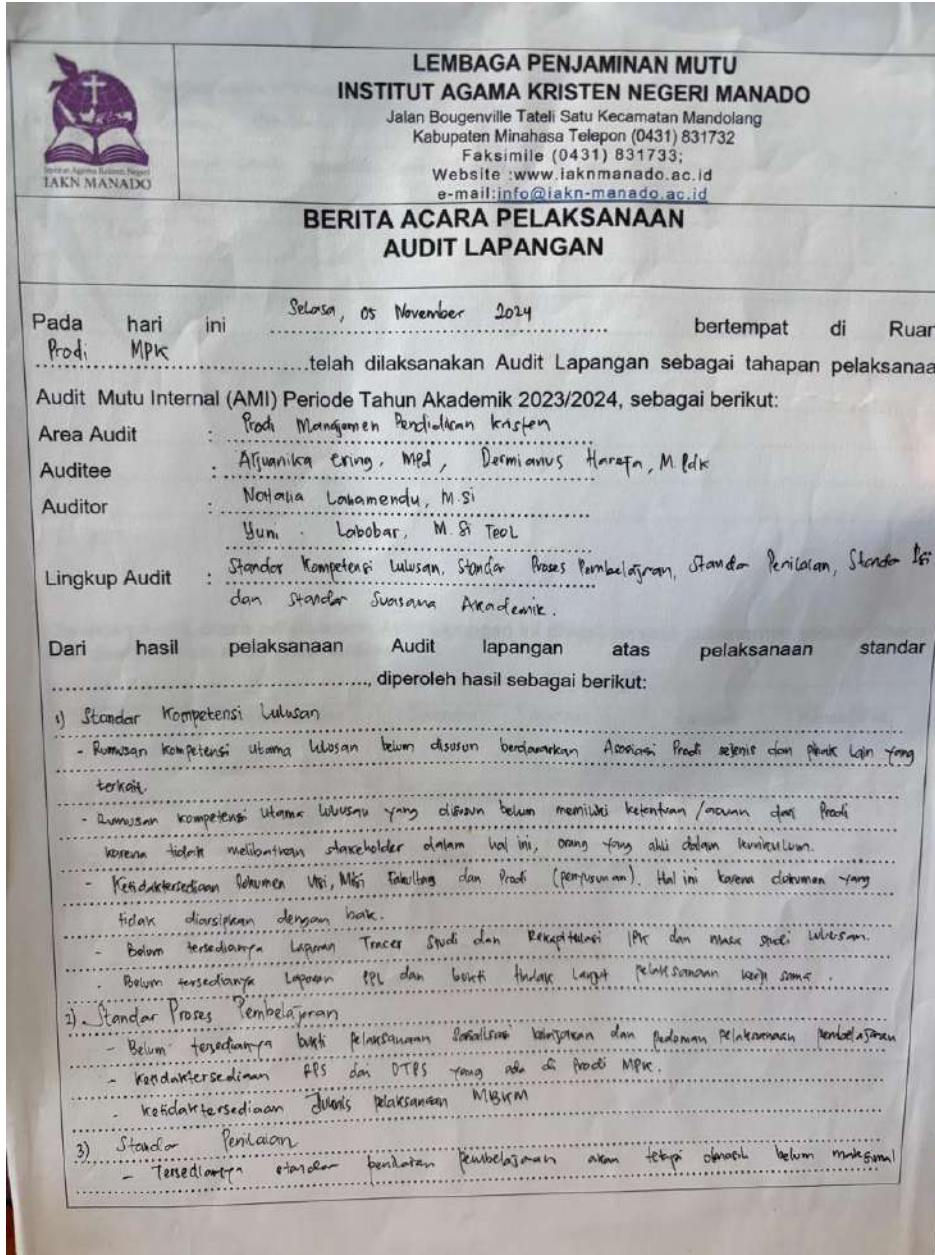 LEMBAGA PENJAMINAN MUTU
INSTITUT AGAMA KRISTEN NEGERI MANADO
Jalan Bougenville Tateli Satu Kecamatan Mandolang
Kabupaten Minahasa Telepon (0431) 831732
Faksimile (0431) 831733;
Website :www.iaknmanado.ac.id
e-mail:info@iakn-manado.ac.id
Institut Agama Kristen Negeri
IAKN MANADO
BERITA ACARA PELAKSANAAN
AUDIT LAPANGAN
Pada hari ini Selasa, 05 November 2024 bertempat di Ruan
Prodi MPK telah dilaksanakan Audit Lapangan sebagai tahapan pelaksanaa
Audit Mutu Internal (AMI) Periode Tahun Akademik 2023/2024, sebagai berikut:
Area Audit : Prodi Manajemen Pendidikan Kristen
Auditee : Arjuanika Ering, MPd, Dermianus Harefa, M.Pdk
Auditor : Natalia Lahamendu, M.Si
Yuni . Labobar, M.Si Teol
Lingkup Audit : Standar Kompetensi Lulusan, Standar Proses Pembelajaran, Standar Penilaian, Standar Isi
dan Standar Suasana Akademik.
Dari hasil pelaksanaan Audit lapangan atas pelaksanaan standar
, diperoleh hasil sebagai berikut:
1) Standar Kompetensi Lulusan
- Rumusan kompetensi utama lulusan belum disusun berdasarkan Asosiasi Prodi sejenis dan pihak lain yang
terkait.
- Rumusan kompetensi utama lulusan yang disusun belum memiliki ketentuan /acuan dari Prodi
karena tidak melibatkan stakeholder dalam hal ini, orang yang ahli dalam kurikulum.
- Ketidaktersediaan Dokumen Visi, Misi Fakultas dan Prodi (penyusunan). Hal ini karena dokumen yang
tidak diarsipkan dengan baik.
- Belum tersedianya Laporan Tracer Studi dan Rekapitulasi IPK dan masa studi lulusan.
- Belum tersedianya Laporan PPL dan bukti tindak lanjut pelaksanaan kerja sama.
2) Standar Proses Pembelajaran
- Belum tersedianya bukti pelaksanaan sosialisasi kebijakan dan pedoman pelaksanaan pembelajaran
- Ketidaktersediaan RPS dari DTPS yang ada di Prodi MPK.
- Ketidaktersediaan Juknis pelaksanaan MBKM
3) Standar Penilaian
- Tersedianya standar penilaian pembelajaran akan tetapi belum maksimal